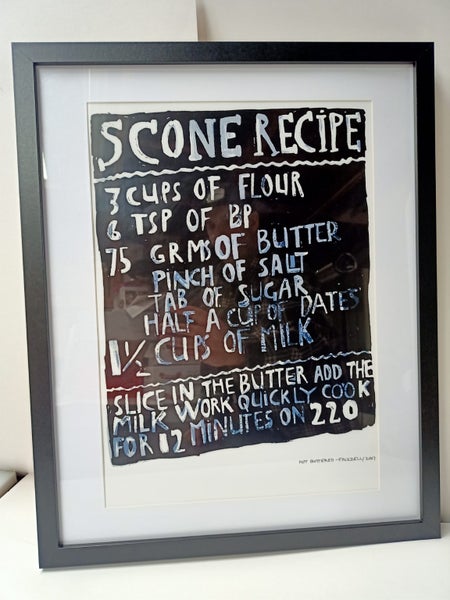 SCONE RECIPE
3 CUPS OF FLOUR
6 TSP OF BP
75 GRMS OF BUTTER
PINCH OF SALT
TAB OF SUGAR
HALF A CUP OF DATES
1½ CUPS OF MILK
SLICE IN THE BUTTER ADD THE
MILK WORK QUICKLY COOK
FOR 12 MINUTES ON 220
HOT BUTTERED